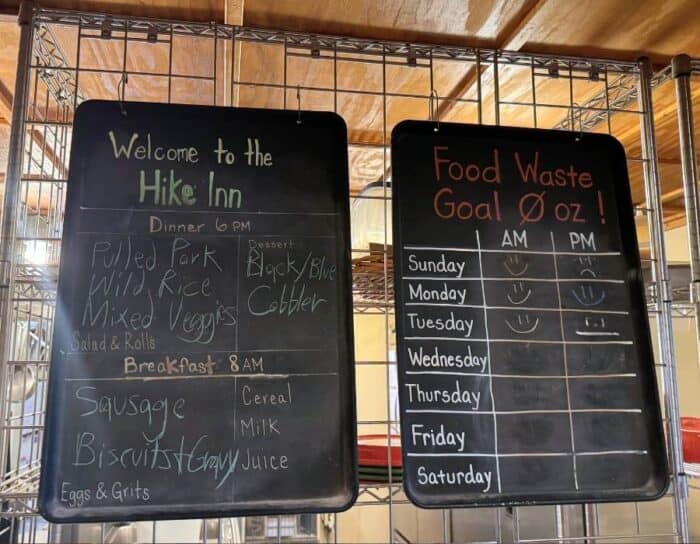 Welcome to the
Hike Inn
Dinner 6 PM
Pulled Pork
Wild Rice
Mixed Veggies
Salad & Rolls
Dessert
Black/Blue
Cobbler
Breakfast 8 AM
Sausage
Biscuits + Gravy
Eggs & Grits
Cereal
Milk
Juice
Food Waste
Goal Ø oz!
AM PM
Sunday
Monday
Tuesday
Wednesday
Thursday
Friday
Saturday